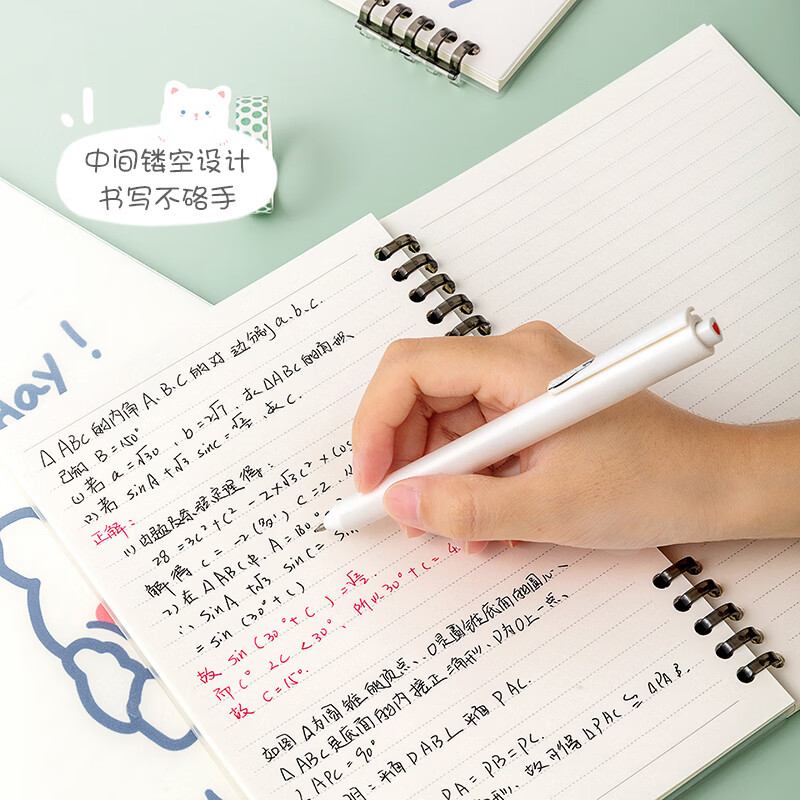 中间镂空设计
书写不硌手
day!
△ABC的内角A.B.C的对边分别a.b.c.
已知 B=150°
(1)若 a=√3c、b=2√7、求△ABC的面积、
(2)若 sinA+√3 sinC=、求C.
正解:
1)由题及余弦定理得:
28=3c²+c²-2×√3c²×cos
解得 c=-2(舍) c=2.
2)在△ABC中.A=180°
∴ sinA+√3 sinC= sin
=sin(30°+C)
故 sin(30°+C)=
而 0°<C<30°、所以30°+C=4
故 C=15°.
如图 △为圆锥的顶点、O是圆锥底面的圆心、
△ABC是底面的内接正三角形、P为DO上一点、
APC=90°
明:平面PAB⊥平面PAC.
DA=PB=PC.
故可得△PAC≌△PAB.